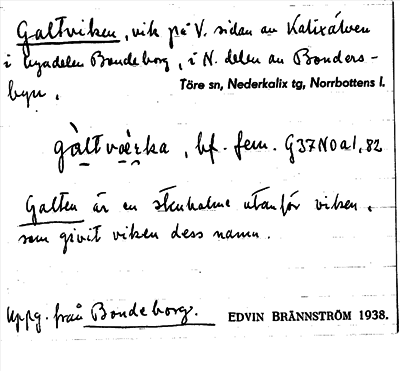 Galtviken, vik på V. sidan av Kalixälven
i byadelen Bondeborg, i N. delen av Bonders-
byn.
Töre sn, Nederkalix tg, Norrbottens l.
gàltvæ̀rka, bf. fem. G37N0a1,82
Galten är en stenholme utanför viken,
som givit viken dess namn.
Uppg. från Bondeborg.
EDVIN BRÄNNSTRÖM 1938.